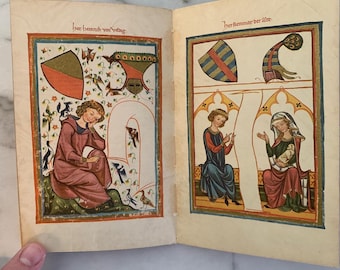 her heinrich von veldig
her Reinmar der alte